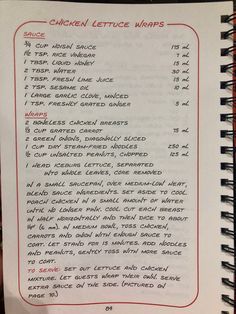 CHICKEN LETTUCE WRAPS
SAUCE
3/4 CUP HOISIN SAUCE 175 mL
1 1/2 TSP. RICE VINEGAR 7 mL
1 TBSP. LIQUID HONEY 15 mL
2 TBSP. WATER 30 mL
1 TBSP. FRESH LIME JUICE 15 mL
2 TSP. SESAME OIL 10 mL
1 LARGE GARLIC CLOVE, MINCED
1 TSP. FRESHLY GRATED GINGER 5 mL
WRAPS
2 BONELESS CHICKEN BREASTS
1/3 CUP GRATED CARROT 75 mL
2 GREEN ONIONS, DIAGONALLY SLICED
1 CUP DRY STEAM-FRIED NOODLES 250 mL
1/2 CUP UNSALTED PEANUTS, CHOPPED 125 mL
1 HEAD ICEBURG LETTUCE, SEPARATED
INTO WHOLE LEAVES, CORE REMOVED
IN A SMALL SAUCEPAN, OVER MEDIUM-LOW HEAT,
BLEND SAUCE INGREDIENTS. SET ASIDE TO COOL.
POACH CHICKEN IN A SMALL AMOUNT OF WATER
UNTIL NO LONGER PINK. COOL. CUT EACH BREAST
IN HALF HORIZONTALLY AND THEN DICE TO ABOUT
1/4" (6 mm). IN MEDIUM BOWL, TOSS CHICKEN,
CARROTS AND ONION WITH ENOUGH SAUCE TO
COAT. LET STAND FOR 15 MINUTES. ADD NOODLES
AND PEANUTS, GENTLY TOSS WITH MORE SAUCE
TO COAT.
TO SERVE: SET OUT LETTUCE AND CHICKEN
MIXTURE. LET GUESTS WRAP THEIR OWN. SERVE
EXTRA SAUCE ON THE SIDE. (PICTURED ON
PAGE 70.)
89